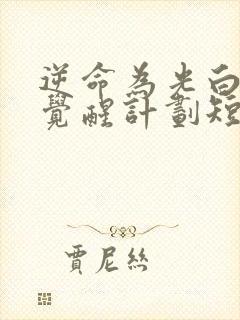 逆命為光白
覺醒計劃短
賈尼絲